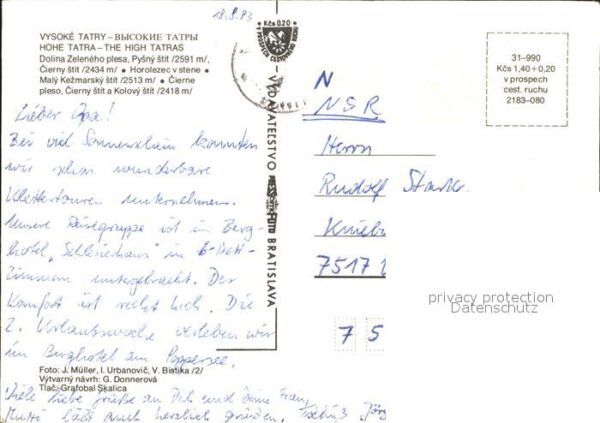 18.8.83
VYSOKÉ TATRY – ВЫСОКИЕ ТАТРЫ
HOHE TATRA – THE HIGH TATRAS
Dolina Zeleného plesa, Pyšný štít /2591 m/,
Čierny štít /2434 m/ • Horolezec v stene •
Malý Kežmarský štít /2513 m/ • Čierne
pleso, Čierny štít a Kolový štít /2418 m/
Kčs 0.20
V PROSPECH CESTOVNÉHO RUCHU
VYDAVATEĽSTVO
BRATISLAVA
31–990
Kčs 1,40 + 0,20
v prospech
cest. ruchu
2183–080
Lieber Opa!
Bei viel Sonnenschein konnten
wir schon wunderbare
Klettertouren unternehmen.
Unsere Reisegruppe ist im Berg-
hotel „Schlesierhaus" in 6-Bett-
Zimmern untergebracht. Der
Komfort ist recht hoch. Die
2. Urlaubswoche verleben wir
im Berghotel am Poppersee.
Viele liebe Grüße an Dich und Deine Frau,
Mutti läßt auch herzlich grüßen. Tschüß Jörg
N
NSR
Herrn
Rudolf
Knieb
7517
7 5
privacy protection
Datenschutz
Foto: J. Müller, I. Urbanovič, V. Bistika /2/
Výtvarný návrh: G. Donnerová
Tlač: Grafobal Skalica